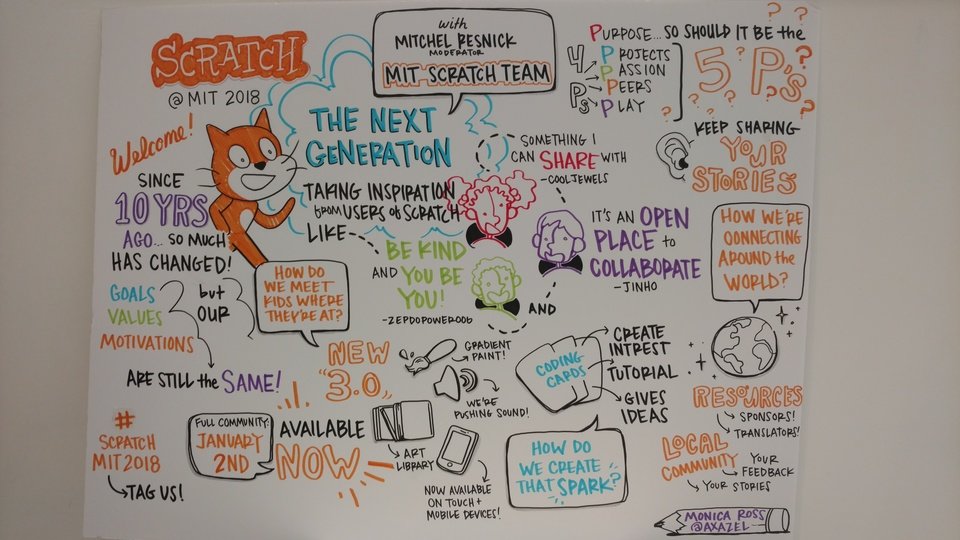 SCRATCH
@ MIT 2018
with
MITCHEL RESNICK
MODERATOR
MIT-SCRATCH TEAM
4
P's
PURPOSE... SO SHOULD IT BE the
PROJECTS
PASSION
PEERS
PLAY
5 P's
? ? ? ? ? ? ? ?
Welcome!
SINCE
10 YRS
AGO... SO MUCH
HAS CHANGED!
GOALS
VALUES
MOTIVATIONS
but
OUR
ARE STILL the SAME!
THE NEXT
GENERATION
TAKING INSPIRATION
from USERS of SCRATCH
LIKE
SOMETHING I
CAN SHARE WITH
-COOLJEWELS
IT'S AN OPEN
PLACE to
COLLABORATE
- JINHO
AND
BE KIND
AND YOU BE
YOU!
KEEP SHARING
YOUR
STORIES
HOW WE'RE
CONNECTING
AROUND the
WORLD?
HOW DO
WE MEET
KIDS WHERE
THEY'RE AT?
NEW
"3.0"
AVAILABLE
NOW
FULL COMMUNITY:
JANUARY
2ND
GRADIENT
PAINT!
WE'RE
PUSHING SOUND!
ART
LIBRARY
NOW AVAILABLE
ON TOUCH +
MOBILE DEVICES!
CODING
CARDS
CREATE
INTREST
TUTORIAL
GIVES
IDEAS
HOW DO
WE CREATE
THAT SPARK?
RESOURCES
SPONSORS!
TRANSLATORS!
LOCAL
COMMUNITY
YOUR
FEEDBACK
YOUR STORIES
#
SCRATCH
MIT2018
TAG US!
MONICA ROSS
@AXAZEL